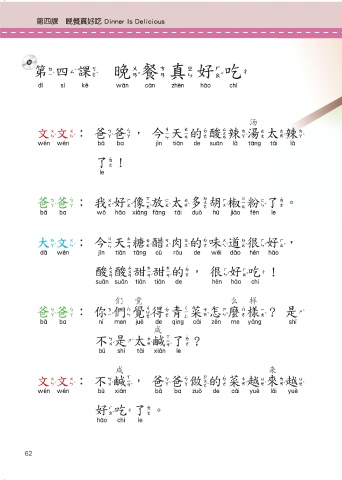 第四課　晚餐真好吃 Dinner Is Delicious
第四課　晚餐真好吃
dì sì kè wǎn cān zhēn hǎo chī
汤
文文：爸爸，今天的酸辣湯太辣
wén wén bà ba jīn tiān de suān là tāng tài là
了！
le
爸爸：我好像放太多胡椒粉了。
bà ba wǒ hǎo xiàng fàng tài duō hú jiāo fěn le
大文：今天糖醋肉的味道很好，
dà wén jīn tiān táng cù ròu de wèi dào hěn hǎo
酸酸甜甜的，很好吃！
suān suān tián tián de hěn hǎo chī
们 觉 么 样
爸爸：你們覺得青菜怎麼樣？是
bà ba nǐ men jué de qīng cài zěn me yàng shì
咸
不是太鹹了？
bú shì tài xián le
咸 来
文文：不鹹，爸爸做的菜越來越
wén wén bù xián bà ba zuò de cài yuè lái yuè
好吃了。
hǎo chī le
62